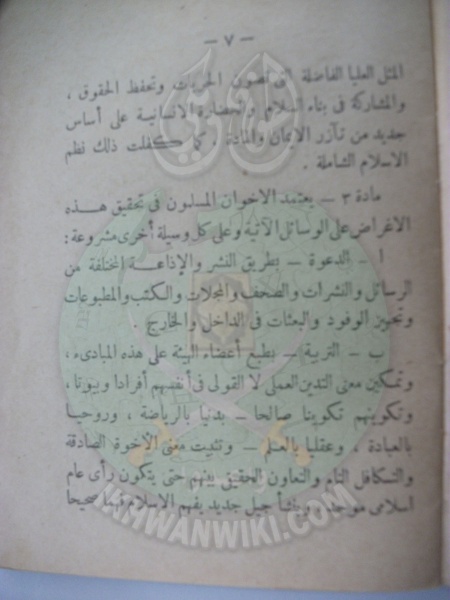 — ٧ —
المثل العليا الفاضلة التي تصون الحريات وتحفظ الحقوق ،
والمشاركة في بناء السلام والحضارة الانسانية على أساس
جديد من تآزر الايمان والمادة ، كما كفلت ذلك نظم
الاسلام الشاملة .
مادة ٣ — يعتمد الاخوان المسلمون في تحقيق هذه
الاغراض على الوسائل الآتية وعلى كل وسيلة أخرى مشروعة :
ا — الدعوة — بطريق النشر والإذاعة المختلفة من
الرسائل والنشرات والصحف والمجلات والكتب والمطبوعات
وتجهيز الوفود والبعثات في الداخل والخارج .
ب — التربية — بطبع أعضاء الهيئة على هذه المبادىء ،
وتمكين معنى التدين العملى لا القولى فى أنفسهم أفرادا وبيوتا ،
وتكوينهم تكوينا صالحا — بدنيا بالرياضة ، وروحيا
بالعبادة ، وعقليا بالعلم — وتثبيت معنى الأخوة الصادقة
والتكافل التام والتعاون الحقيقى بينهم حتى يتكون رأى عام
اسلامى موحد ، وينشأ جيل جديد يفهم الاسلام فهما صحيحا
IKHWANWIKI.COM